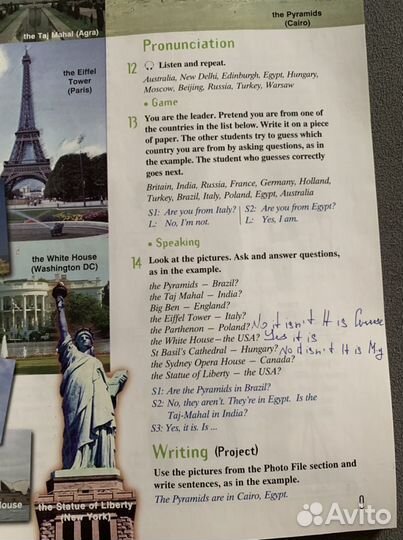 the Taj Mahal (Agra)
the Pyramids
(Cairo)
Pronunciation
12 Listen and repeat.
Australia, New Delhi, Edinburgh, Egypt, Hungary,
Moscow, Beijing, Russia, Turkey, Warsaw
• Game
13 You are the leader. Pretend you are from one of
the countries in the list below. Write it on a piece
of paper. The other students try to guess which
country you are from by asking questions, as in
the example. The student who guesses correctly
goes next.
Britain, India, Russia, France, Germany, Holland,
Turkey, Brazil, Italy, Poland, Egypt, Australia
S1: Are you from Italy? S2: Are you from Egypt?
L: No, I'm not. L: Yes, I am.
• Speaking
14 Look at the pictures. Ask and answer questions,
as in the example.
the Pyramids – Brazil?
the Taj Mahal – India?
Big Ben – England?
the Eiffel Tower – Italy?
the Parthenon – Poland? No it isn't It is
the White House – the USA? Yes it is
St Basil's Cathedral – Hungary? No it isn't It is
the Sydney Opera House – Canada?
the Statue of Liberty – the USA?
S1: Are the Pyramids in Brazil?
S2: No, they aren't. They're in Egypt. Is the
Taj-Mahal in India?
S3: Yes, it is. Is ...
Writing (Project)
Use the pictures from the Photo File section and
write sentences, as in the example.
The Pyramids are in Cairo, Egypt.
9
the Eiffel
Tower
(Paris)
the White House
(Washington DC)
House
the Statue of Liberty
(New York)
Avito